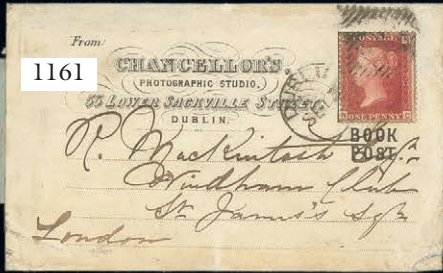 From
1161
CHANCELLOR'S
PHOTOGRAPHIC STUDIO,
55 LOWER SACKVILLE STREET,
DUBLIN.
POSTAGE
ONE PENNY
BOOK
POST
R. Mackintosh Esqr.
Windham Club
St. James's Sqre
London